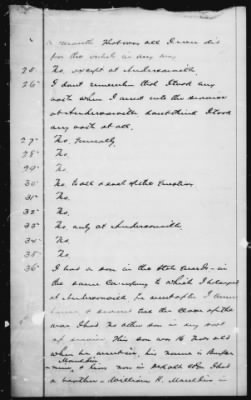 a month that was all I ever did
for the rebels in any way
25. No, except at Andersonville.
26. I dont remember that I took any
oath when I went into the service
at Andersonville dont think I took
any oath at all.
27. No, Generally
28. No.
29. No.
30. No. to all & each of the Question
31. No.
32. No.
33. No, only at Andersonville.
34. No.
35. No.
36. I had a son in the State Guards in
the same Company to which I belonged
at Andersonville
the close of the
war I had no other son in any sort
of service This son was 16 years old
when he went in, his name is
Mauldin
& lives now in I had
a brother William R. Mauldin in